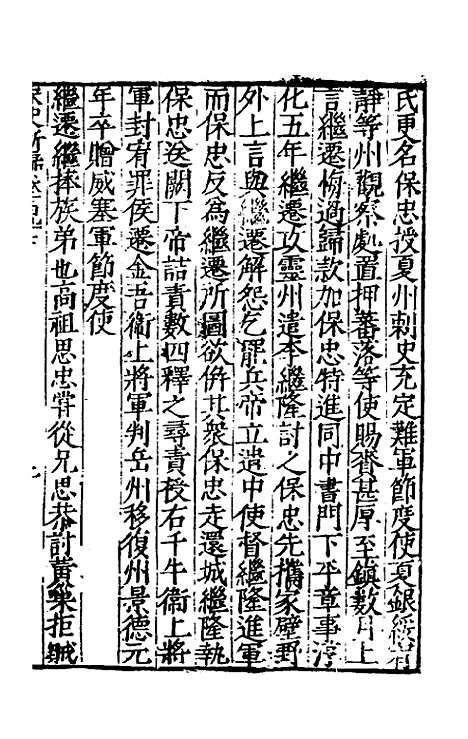 氏更名保忠授夏州刺史充定難軍節度使夏銀綏宥
靜等州觀察處置押蕃落等使賜賚甚厚至鎮數月上
言繼遷悔過歸款加保忠特進同中書門下平章事淳
化五年繼遷攻靈州遣李繼隆討之保忠先攜家壁野
外上言與繼遷解怨乞罷兵帝立遣中使督繼隆進軍
而保忠反為繼遷所圖欲併其衆保忠走還城繼隆執
保忠送闕下帝詰責數四釋之尋責授右千牛衞上將
軍封宥罪侯遷金吾衞上將軍判岳州移復州景德元
年卒贈威塞軍節度使
繼遷繼捧族弟也高祖思忠嘗從兄思恭討黃巢拒賊